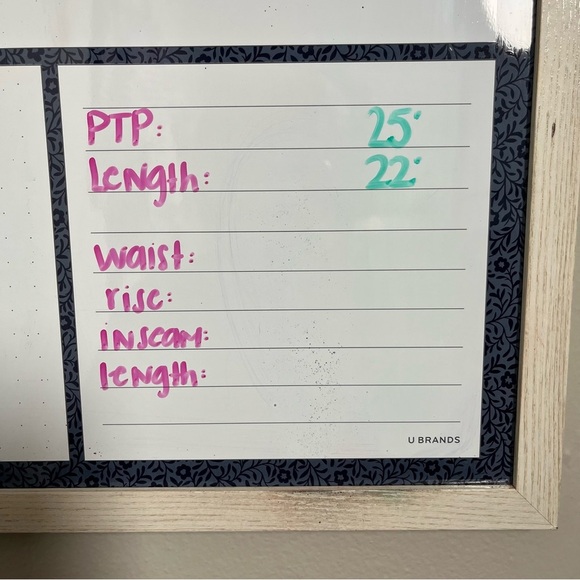 PTP: 25"
Length: 22"
waist:
rise:
inseam:
length:
U BRANDS